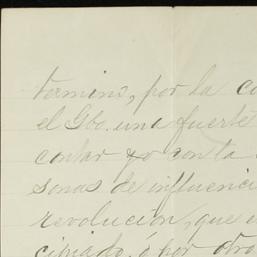 termino, por la co
el Gbo. una fuerte
contar yo con la
sonas de influenci
revolución, que
cipiado, o por otro